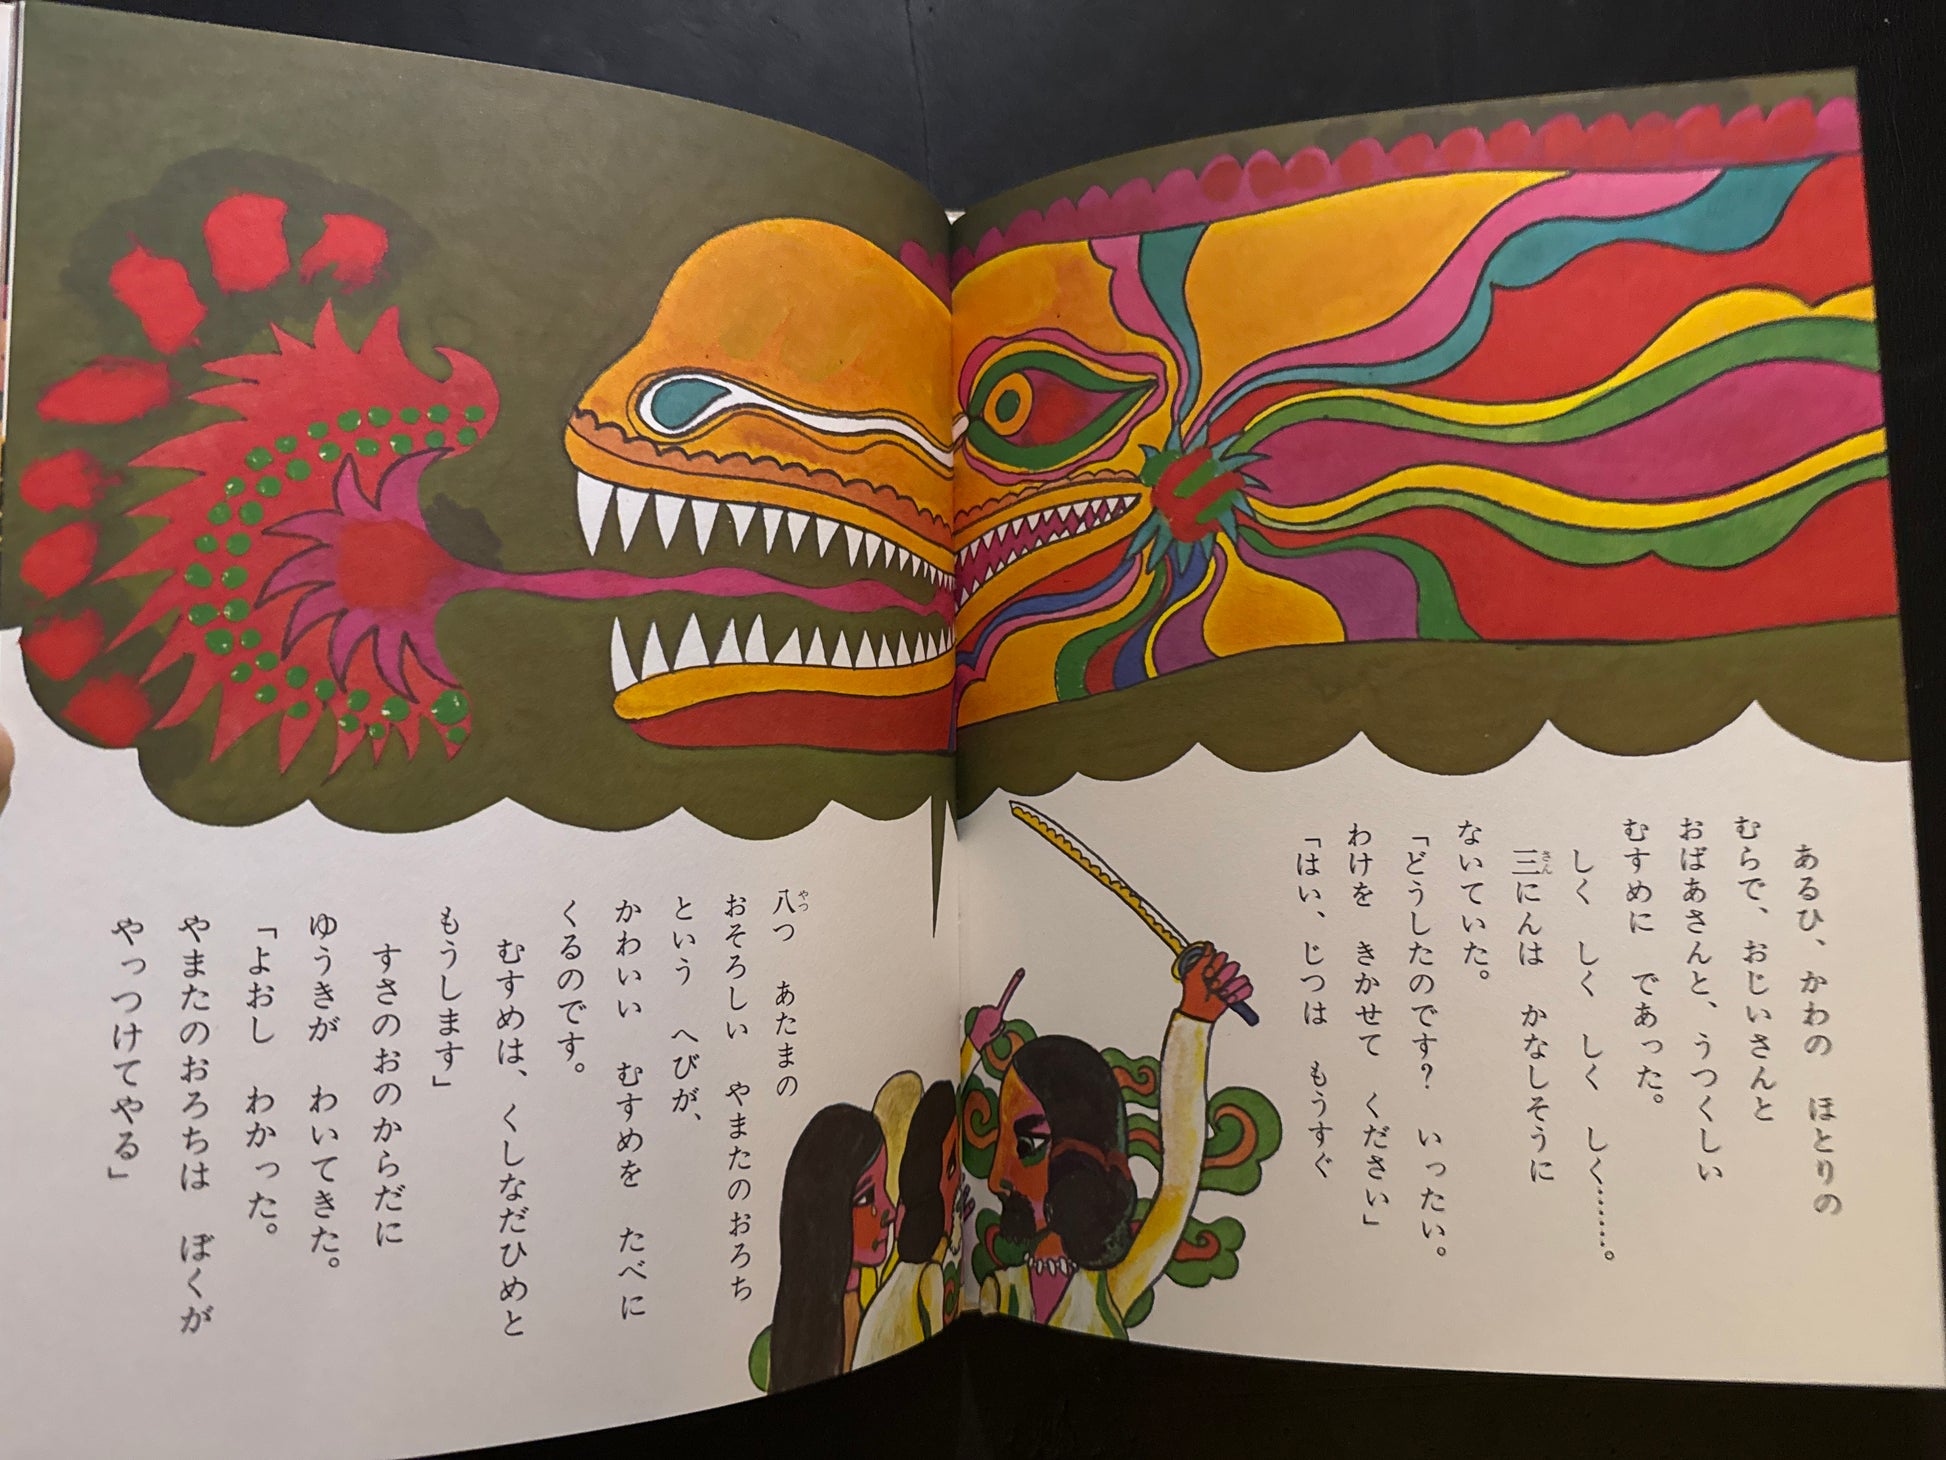 あるひ、かわの ほとりの
むらで、おじいさんと
おばあさんと、うつくしい
むすめに であった。
しく しく しく しく……。
三にんは かなしそうに
さん
ないていた。
「どうしたのです? いったい。
わけを きかせて ください」
「はい、じつは もうすぐ
八つ あたまの
やつ
おそろしい やまたのおろち
という へびが、
かわいい むすめを たべに
くるのです。
むすめは、くしなだひめと
もうします」
すさのおのからだに
ゆうきが わいてきた。
「よおし わかった。
やまたのおろちは ぼくが
やっつけてやる」